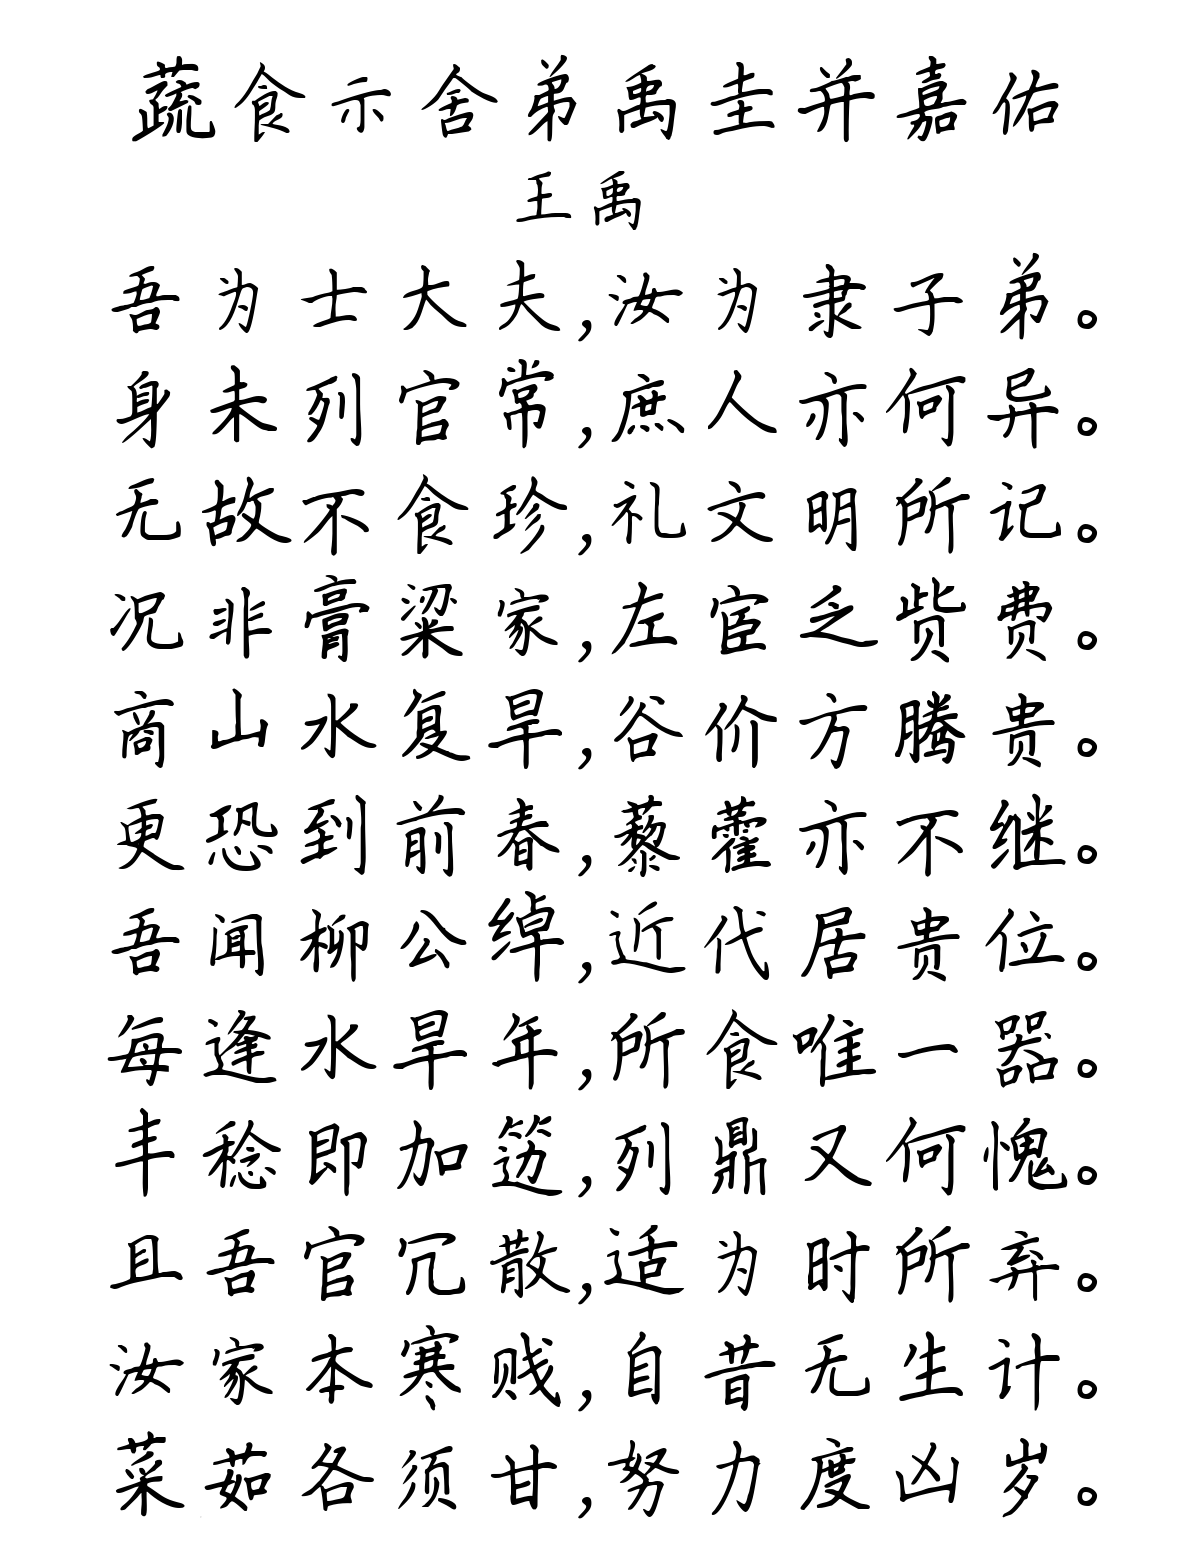 蔬食示舍弟禹圭并嘉佑
王禹
吾为士大夫,汝为隶子弟。
身未列官常,庶人亦何异。
无故不食珍,礼文明所记。
况非膏粱家,左宦乏赀费。
商山水复旱,谷价方腾贵。
更恐到前春,藜藿亦不继。
吾闻柳公绰,近代居贵位。
每逢水旱年,所食唯一器。
丰稔即加笾,列鼎又何愧。
且吾官冗散,适为时所弃。
汝家本寒贱,自昔无生计。
菜茹各须甘,努力度凶岁。